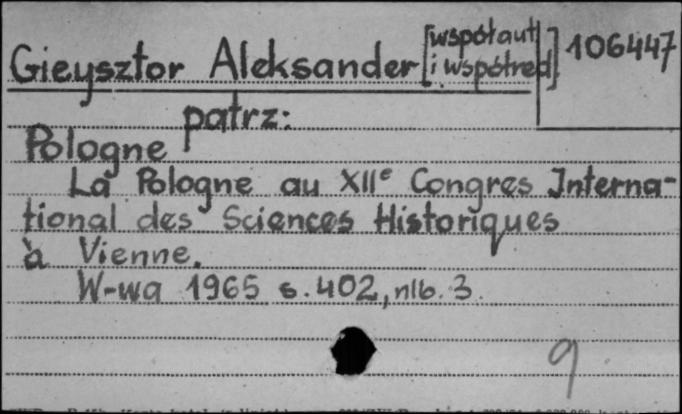 Gieysztor Aleksander [współaut i współred] 106447
patrz:
Pologne
La Pologne au XIIe Congres Interna-
tional des Sciences Historiques
à Vienne.
W-wa 1965 s. 402, nlb. 3.
9